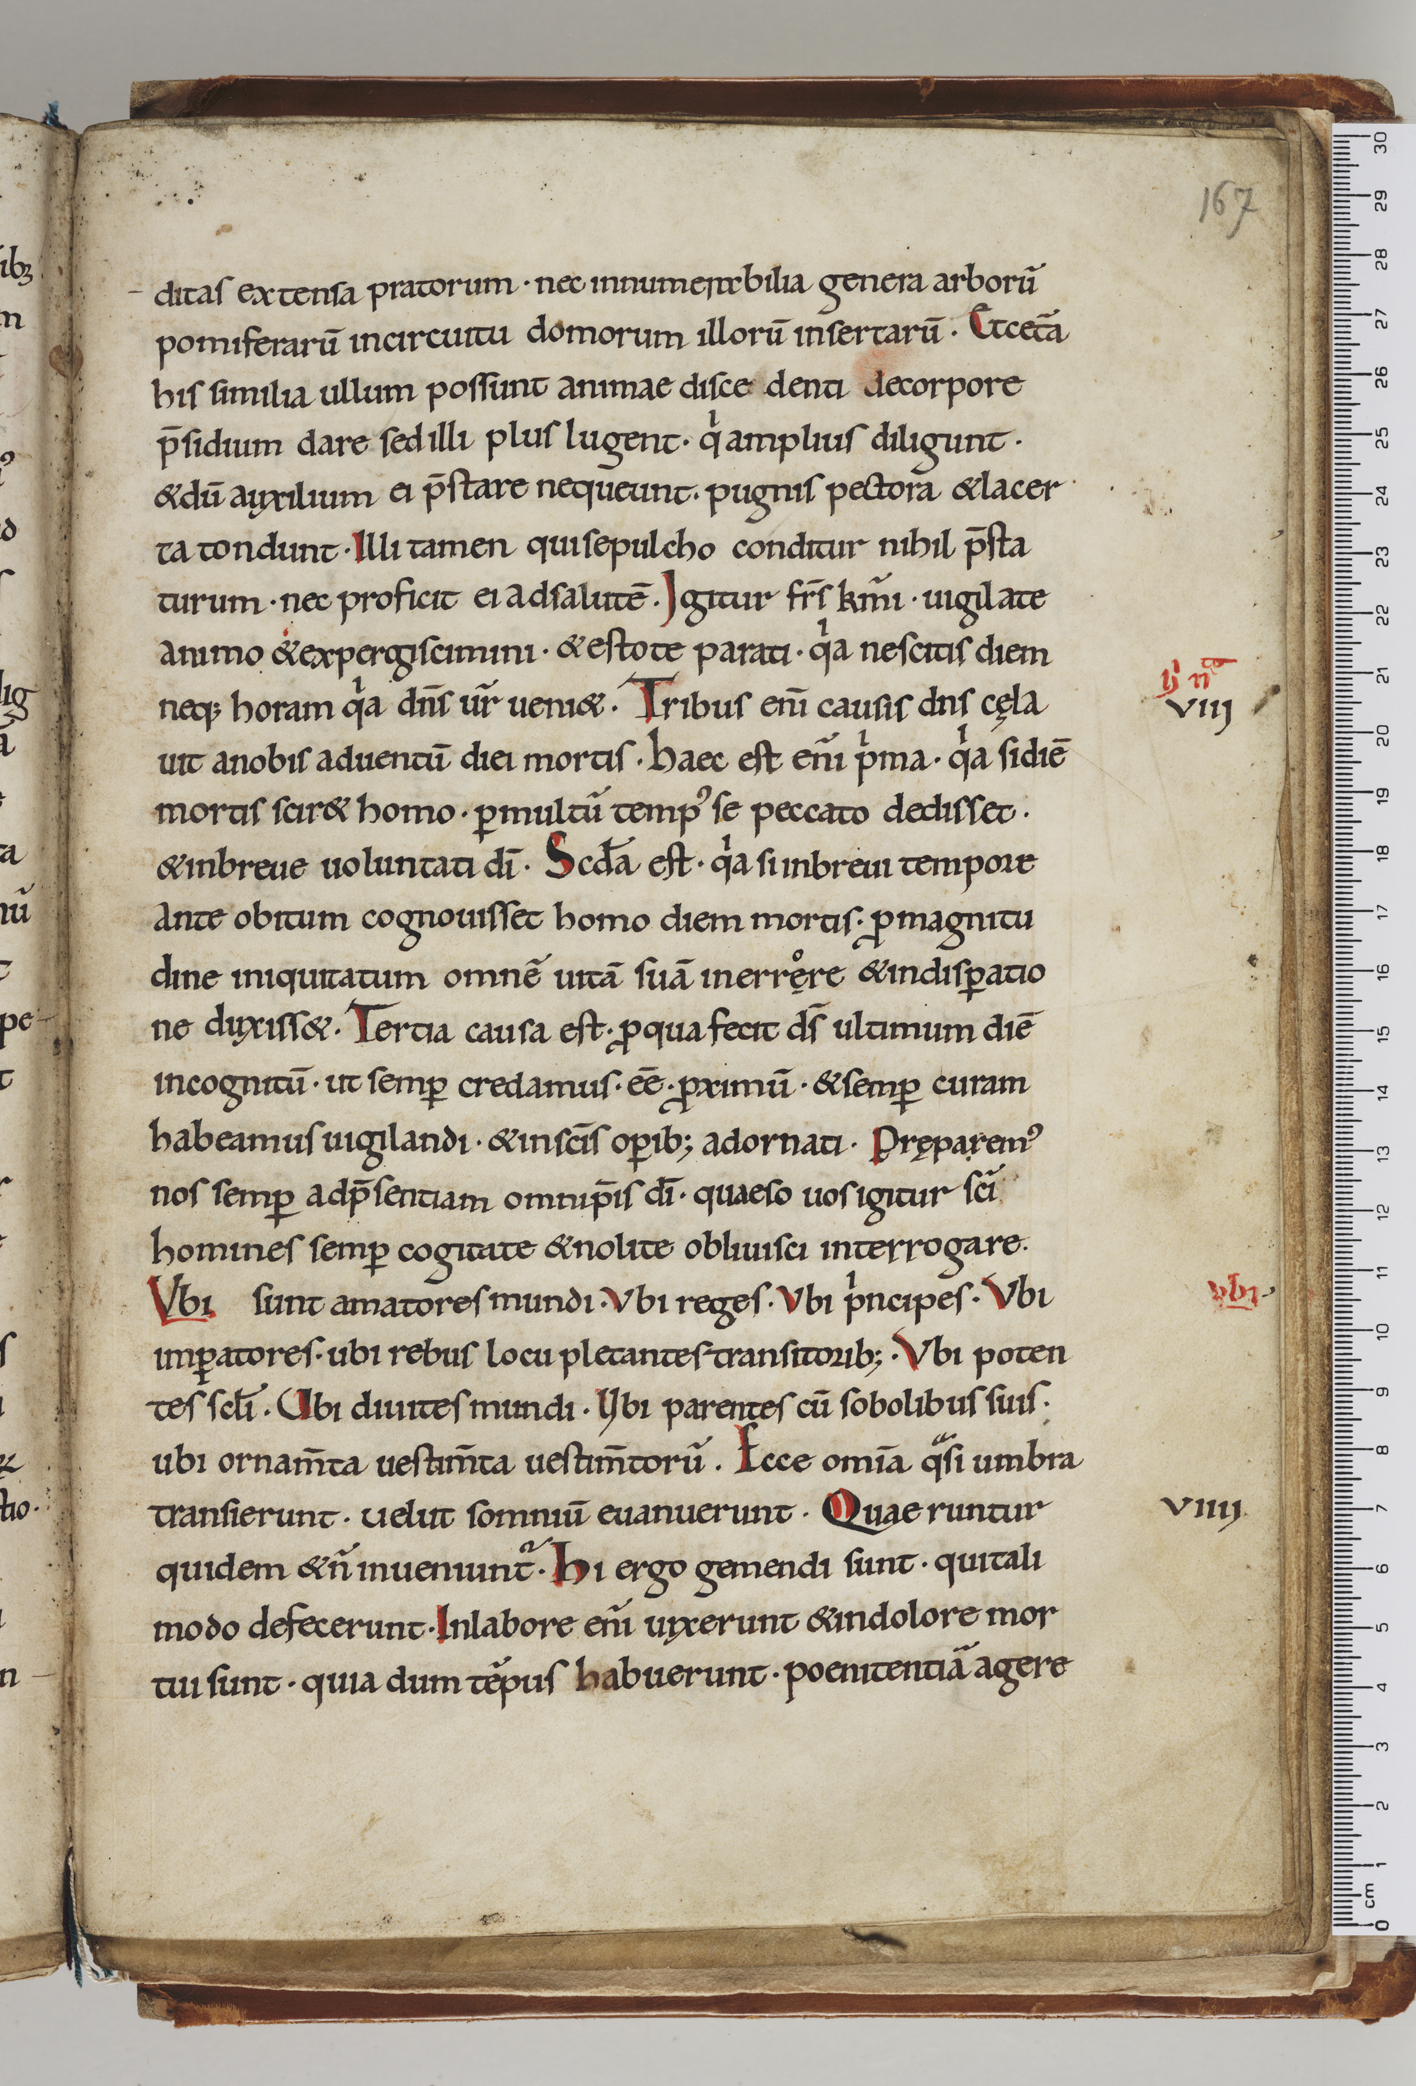 167
ditas extensa pratorum · nec innumerabilia genera arborū
pomiferarū incircuitu domorum illorū insertarū · Etcet̄a
his similia ullum possunt animae disce denti decorpore
p̄sidium dare sed illi plus lugent · qͥ amplius diligunt ·
&dū auxilium ei p̄stare nequeunt · pugnis pectora &lacer
ta tondunt · Illi tamen qui sepulcho conditur nihil p̄sta
turum · nec proficit ei adsalutē · Igitur frs̄ km̄i · uigilate
animo &expergiscimini · &estote parati · qͥa nescitis diem
neq; horam qͥa dn̄s ur̄ ueni& · Tribus eni̅ causis dns cęla
uit anobis aduentū diei mortis · haec est eni̅ pͥma · qͥa sidiē
mortis scir& homo · ꝑmultū tempꝰ se peccato dedisset ·
&inbreue uoluntati dī · Scd̄a est · qͥa si inbreui tempore
ante obitum cognouisset homo diem mortis · ꝓmagnitu
dine iniquitatum omnē uitā suā inerrọͦre &indisꝑatio
ne duxiss& · Tertia causa est · ꝓqua fecit ds̄ ultimum diē
incognitū · ut semꝑ credamus · eē · ꝓximū · &semꝑ curam
habeamus uigilandi · &insc̄is oꝑib; adornati · Pręparemꝰ
nos semꝑ adp̄sentiam omnip̄is dī · quaeso uos igitur sc̄i
homines semꝑ cogitate &nolite obliuisci interrogare ·
Vbi sunt amatores mundi · Vbi reges · Vbi pͥncipes · Vbi
imꝑatores · ubi rebus locu pletantes transitorib; · Vbi poten
tes scl̄i · Ubi diuites mundi · Ubi parentes cū sobolibus suis ·
ubi ornam̄ta uestim̄ta uestim̄torū · Ecce omīa qͣsi umbra
transierunt · uelut somniū euanuerunt · Quae runtur
quidem &n̄ inueniunt᷑ · Hi ergo gemendi sunt · qui tali
modo defecerunt · Inlabore eni̅ uixerunt &indolore mor
tui sunt · quia dum tēpus habuerunt · poenitentiā agere
VIII
Vbi
VIIII